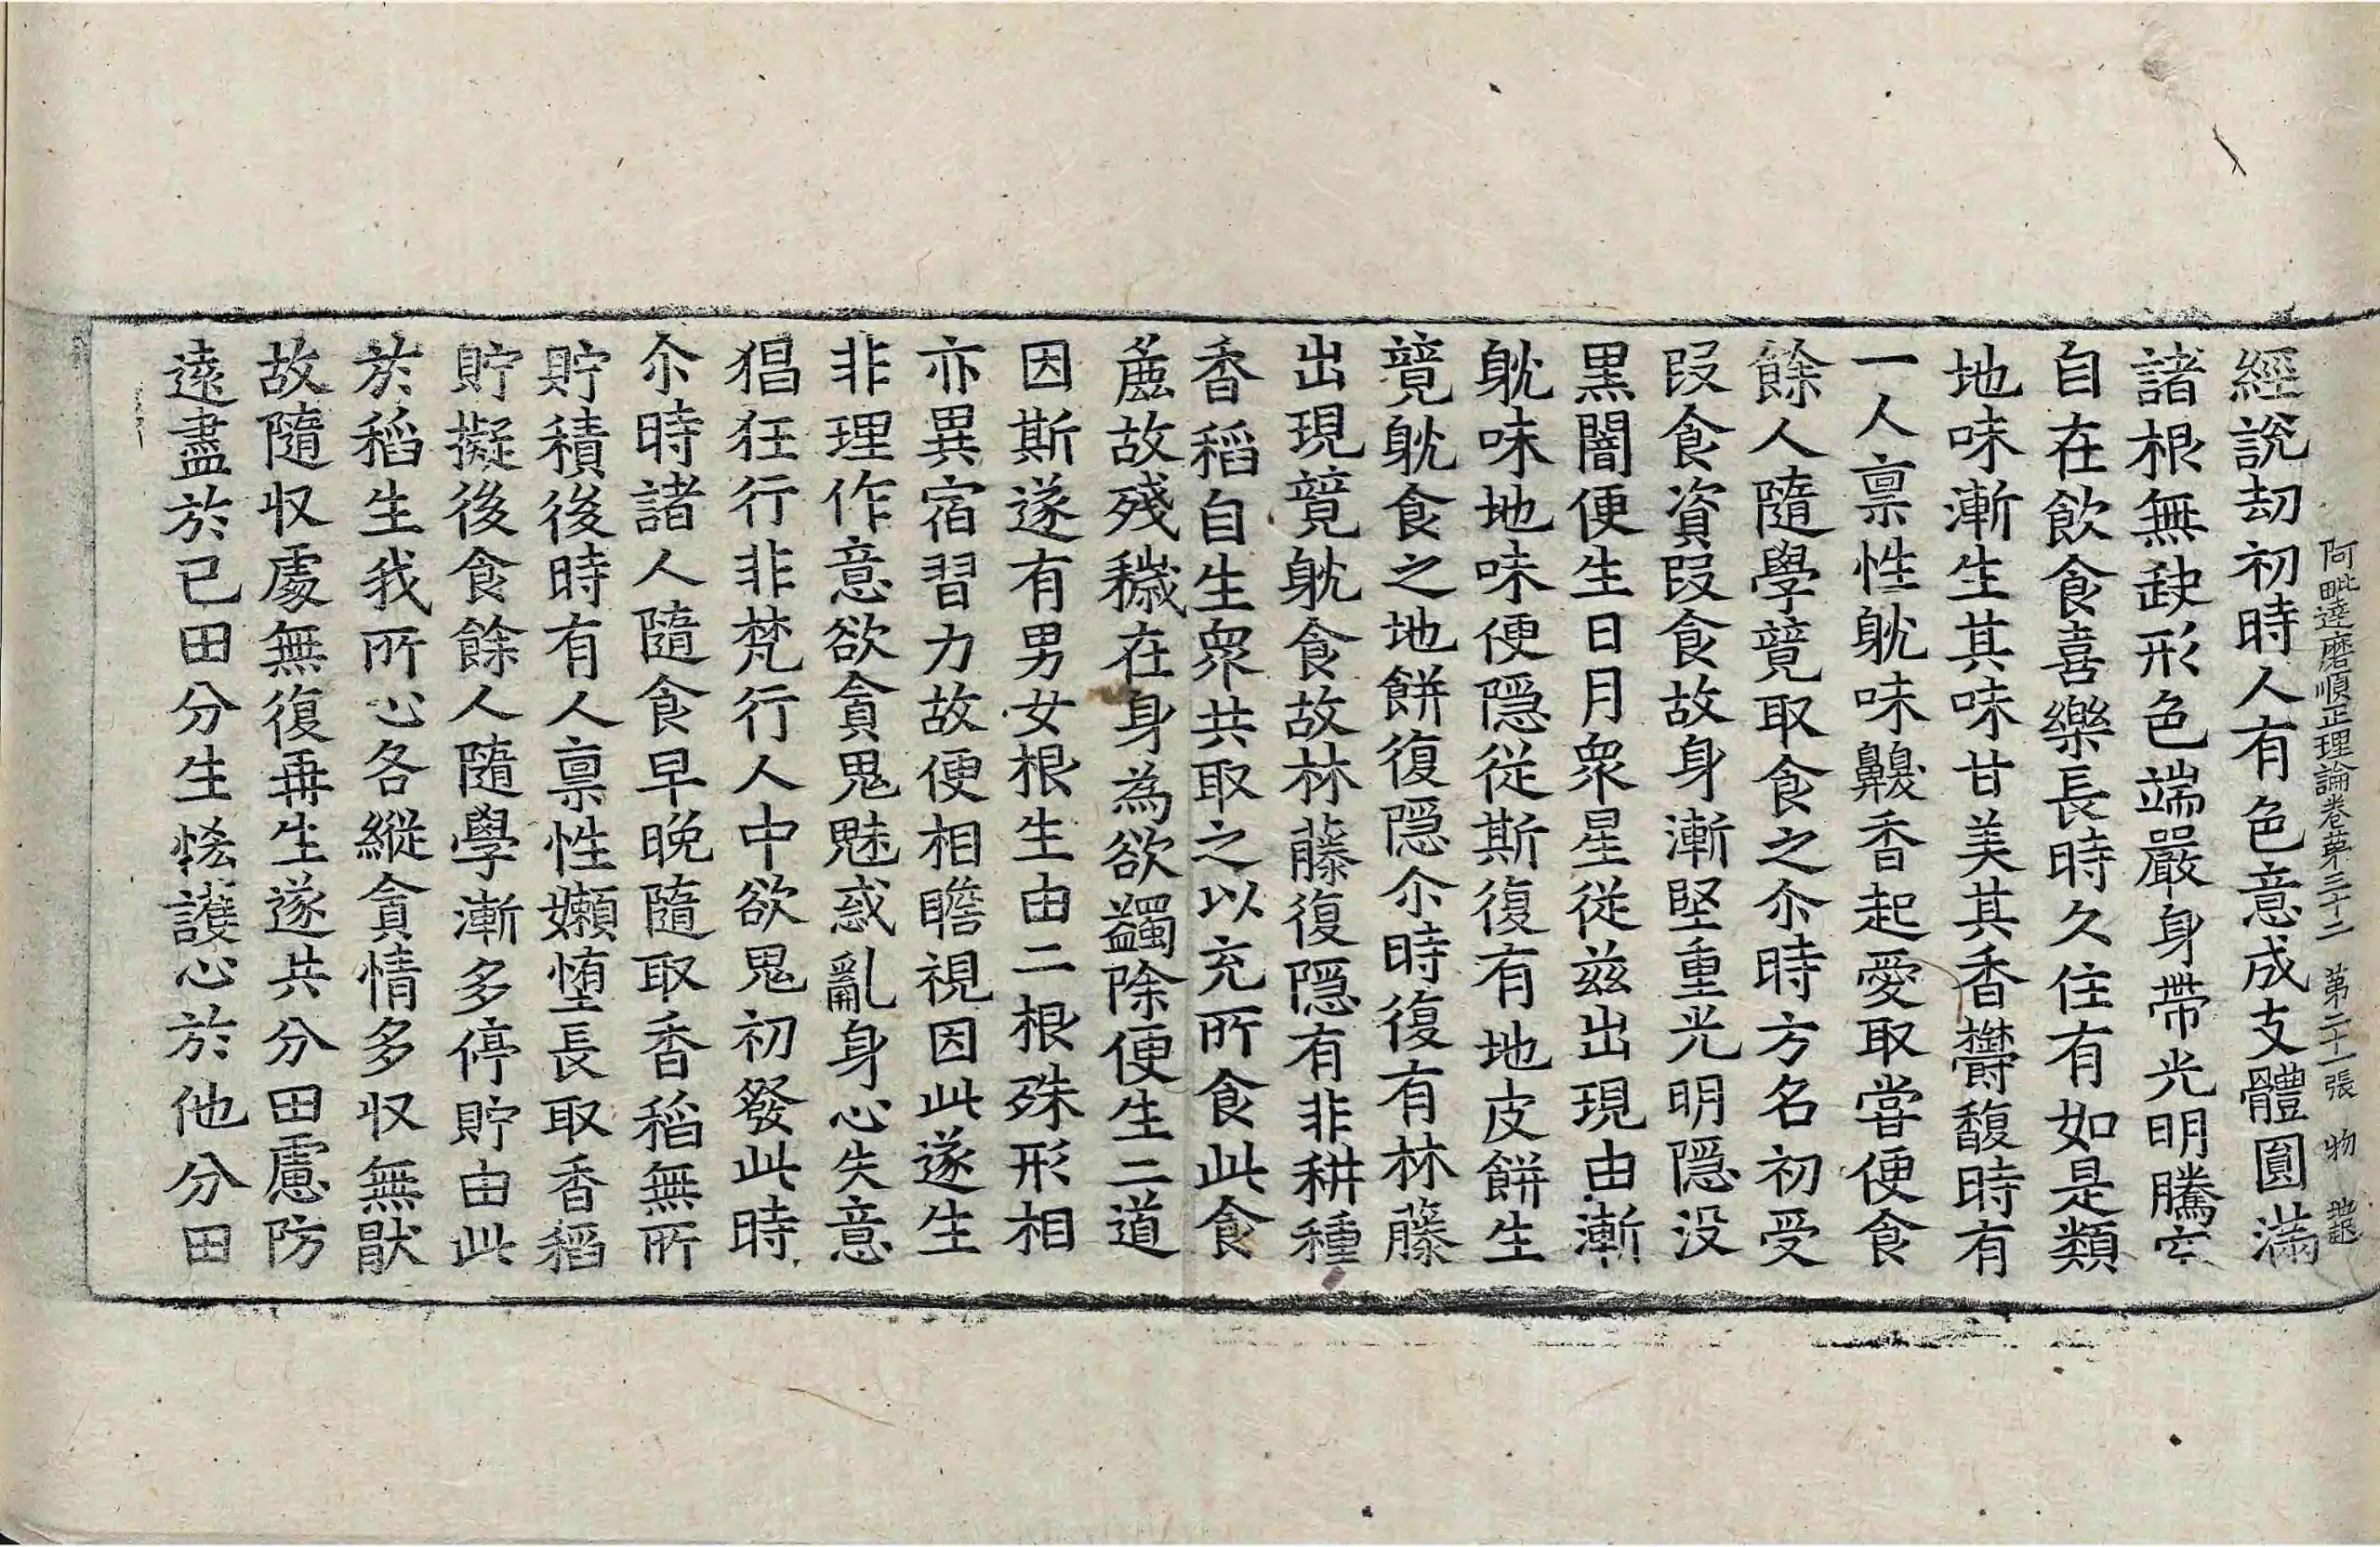 阿毗達磨順正理論卷第三十二 第二十一張 物
經說劫初時人有色意成支體圓滿
諸根無缺形色端嚴身帶光明騰空
自在飲食喜樂長時久住有如是類
地味漸生其味甘美其香欝馥時有
一人禀性躭味齅香起愛取嘗便食
餘人隨學競取食之尒時方名初受
段食資段食故身漸堅重光明隠没
黑闇便生日月衆星從茲出現由漸
躭味地味便隠從斯復有地皮餅生
競躭食之地餅復隠尒時復有林藤
出現競躭食故林藤復隠有非耕種
香稻自生衆共取之以充所食此食
麁故殘穢在身為欲蠲除便生二道
因斯遂有男女根生由二根殊形相
亦異宿習力故便相瞻視因此遂生
非理作意欲貪鬼魅惑亂身心失意
猖狂行非梵行人中欲鬼初發此時
尒時諸人隨食早晚隨取香稻無所
貯積後時有人禀性嬾墮長取香稻
貯擬後食餘人隨學漸多停貯由此
於稻生我所心各縱貪情多収無猒
故隨収處無復再生遂共分田慮防
遠盡於已田分生悋護心於他分田